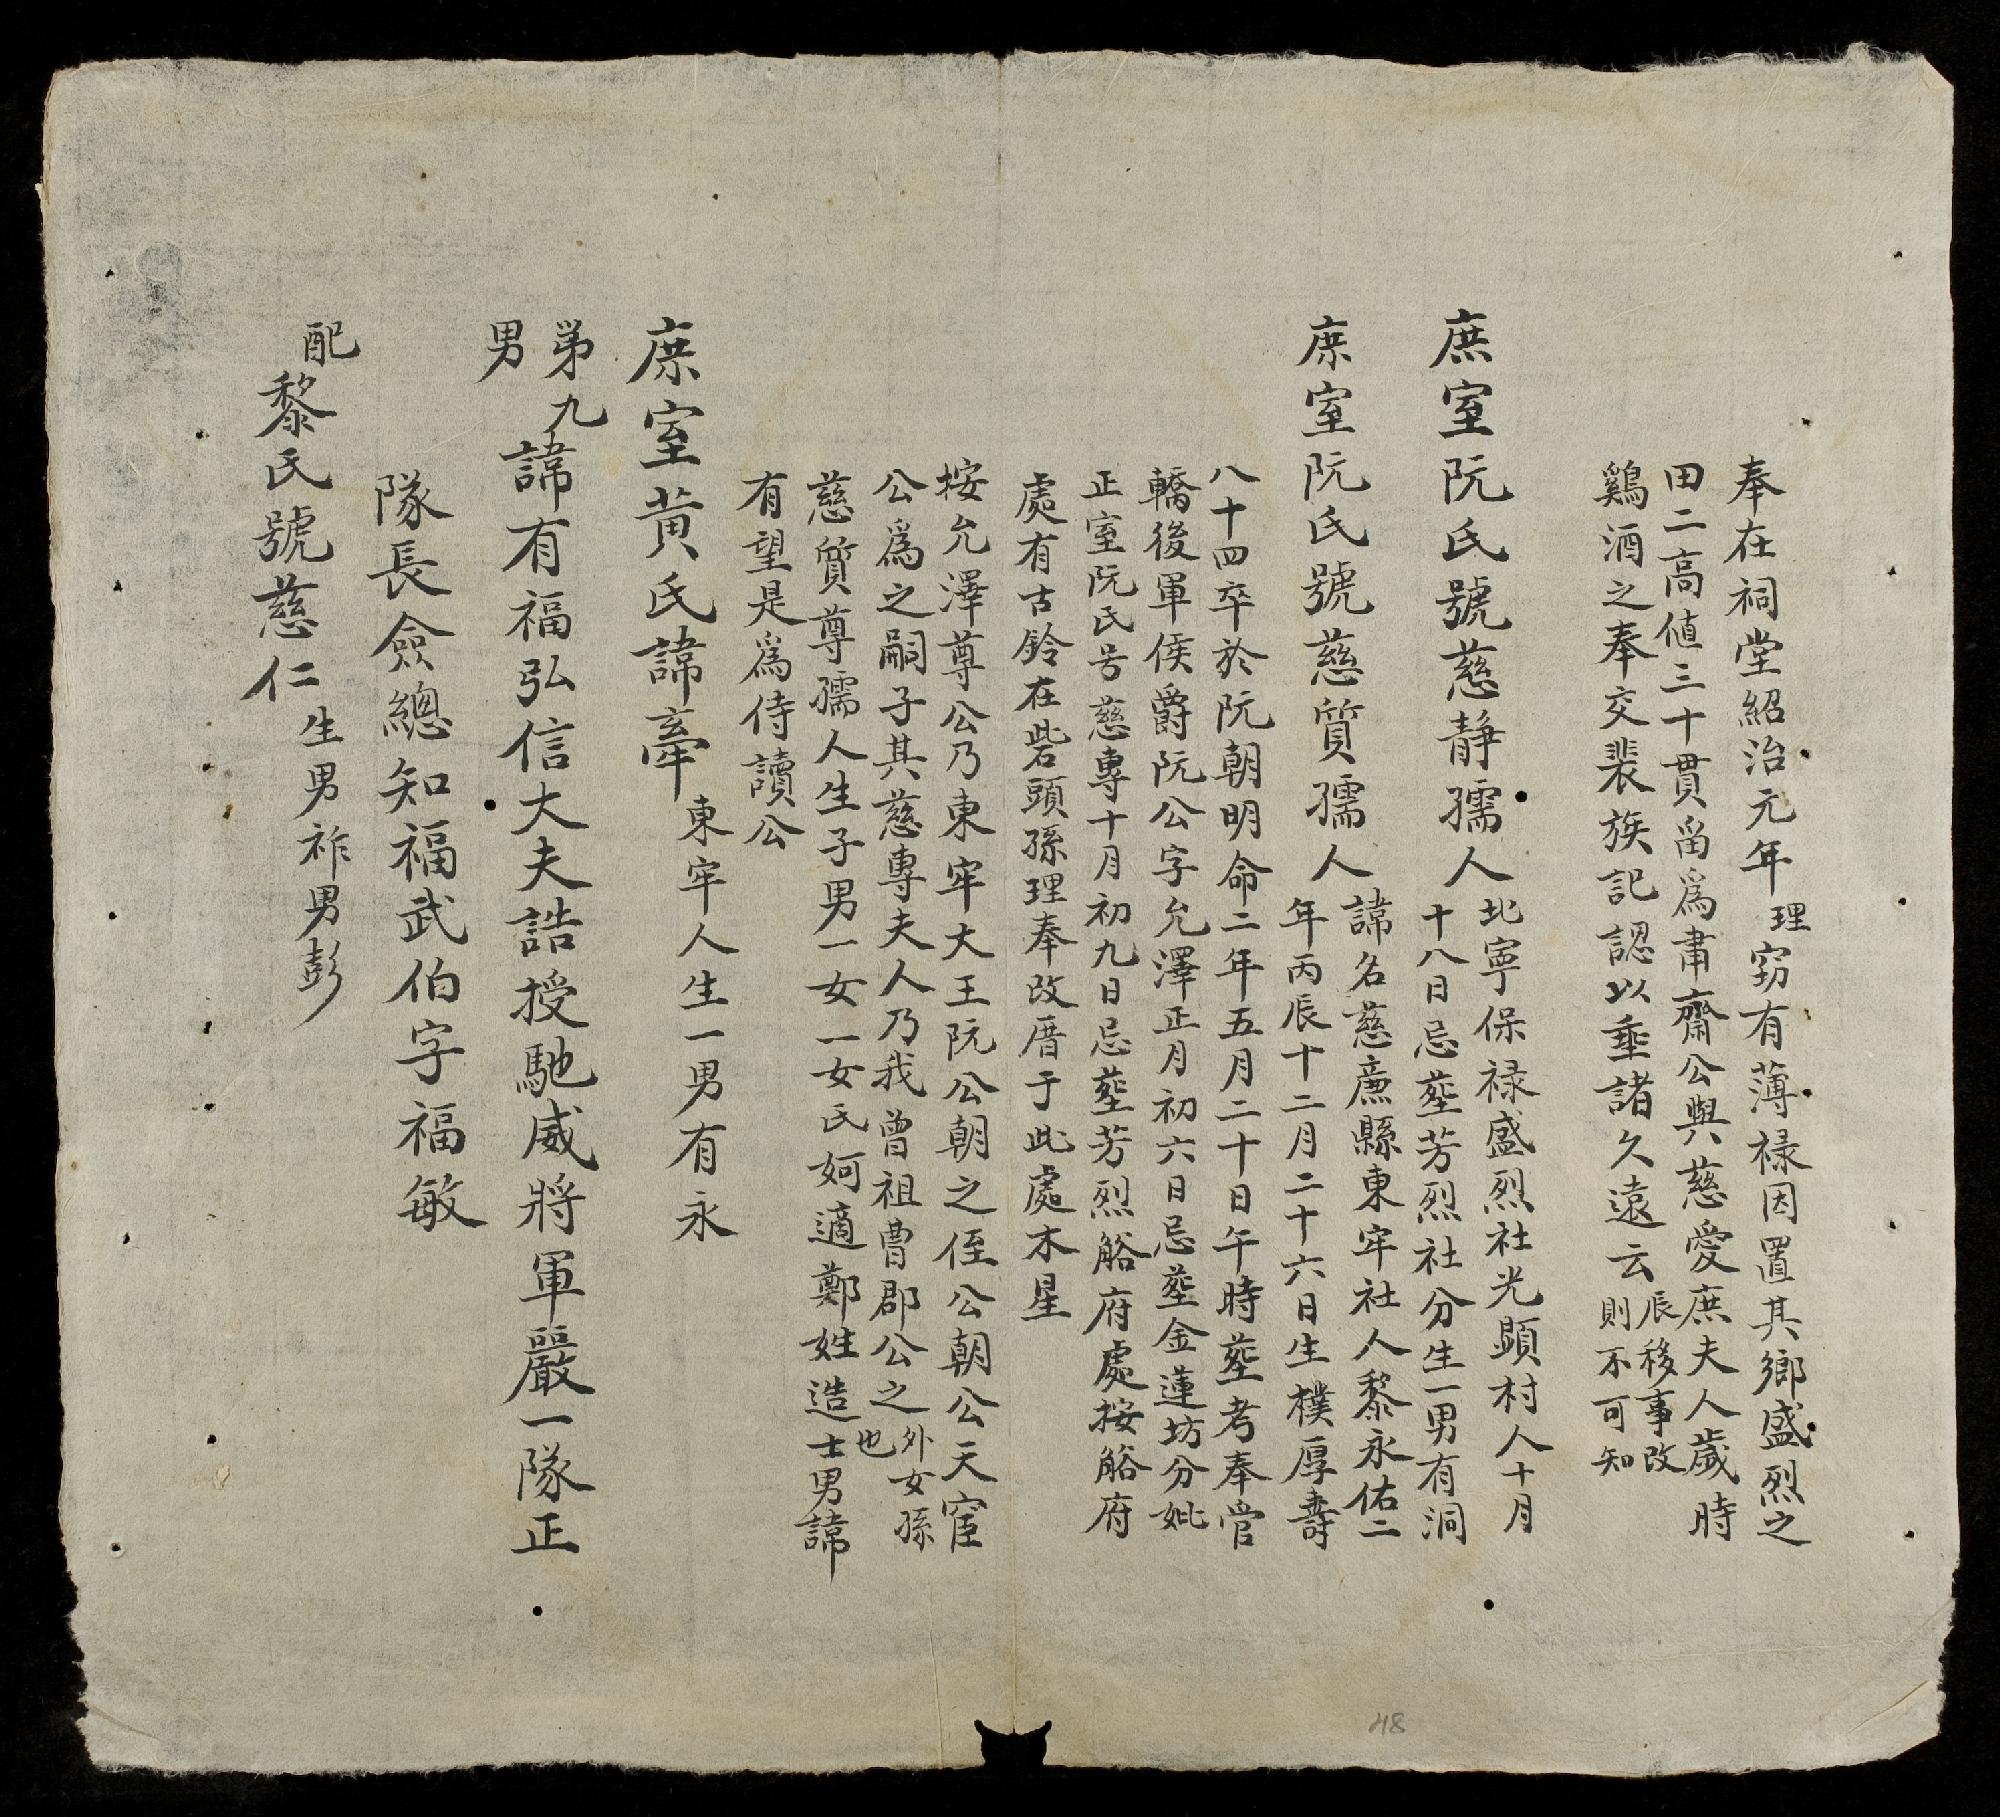 奉在祠堂紹治元年理窃有薄禄因置其鄉盛烈之
田二高値三十貫畱爲肅齋公與慈愛庶夫人歲時
鷄酒之奉交裴族記認以垂諸久遠云辰移事改則不可知
庶室阮氏號慈静孺人北寧保禄盛烈社光顕村人十月
十八日忌塟芳烈社分生一男有洞
庶室阮氏號慈質孺人諱名慈亷縣東牢社人黎永佑二
年丙辰十二月二十六日生樸厚壽
八十四卒於阮朝明命二年五月二十日午時塟考奉管
轎後軍侯爵阮公字允澤正月初六日忌塟金蓮坊分妣
正室阮氏号慈專十月初九日忌塟芳烈觡府處按觡府
處有古鈴在砦頭孫理奉改厝于此處木星
按允澤尊公乃東牢大王阮公朝之侄公朝公天宦
公爲之嗣子其慈專夫人乃我曾祖曹郡公之外女孫也
慈質尊孺人生子男一女一女氏妸適鄭姓造士男諱
有望是爲侍讀公
庶室黄氏諱牽東牢人生一男有永
第九男諱有福弘信大夫誥授馳威將軍嚴一隊正
隊長僉總知福武伯字福敏
配黎氏號慈仁生男祚男彭
48